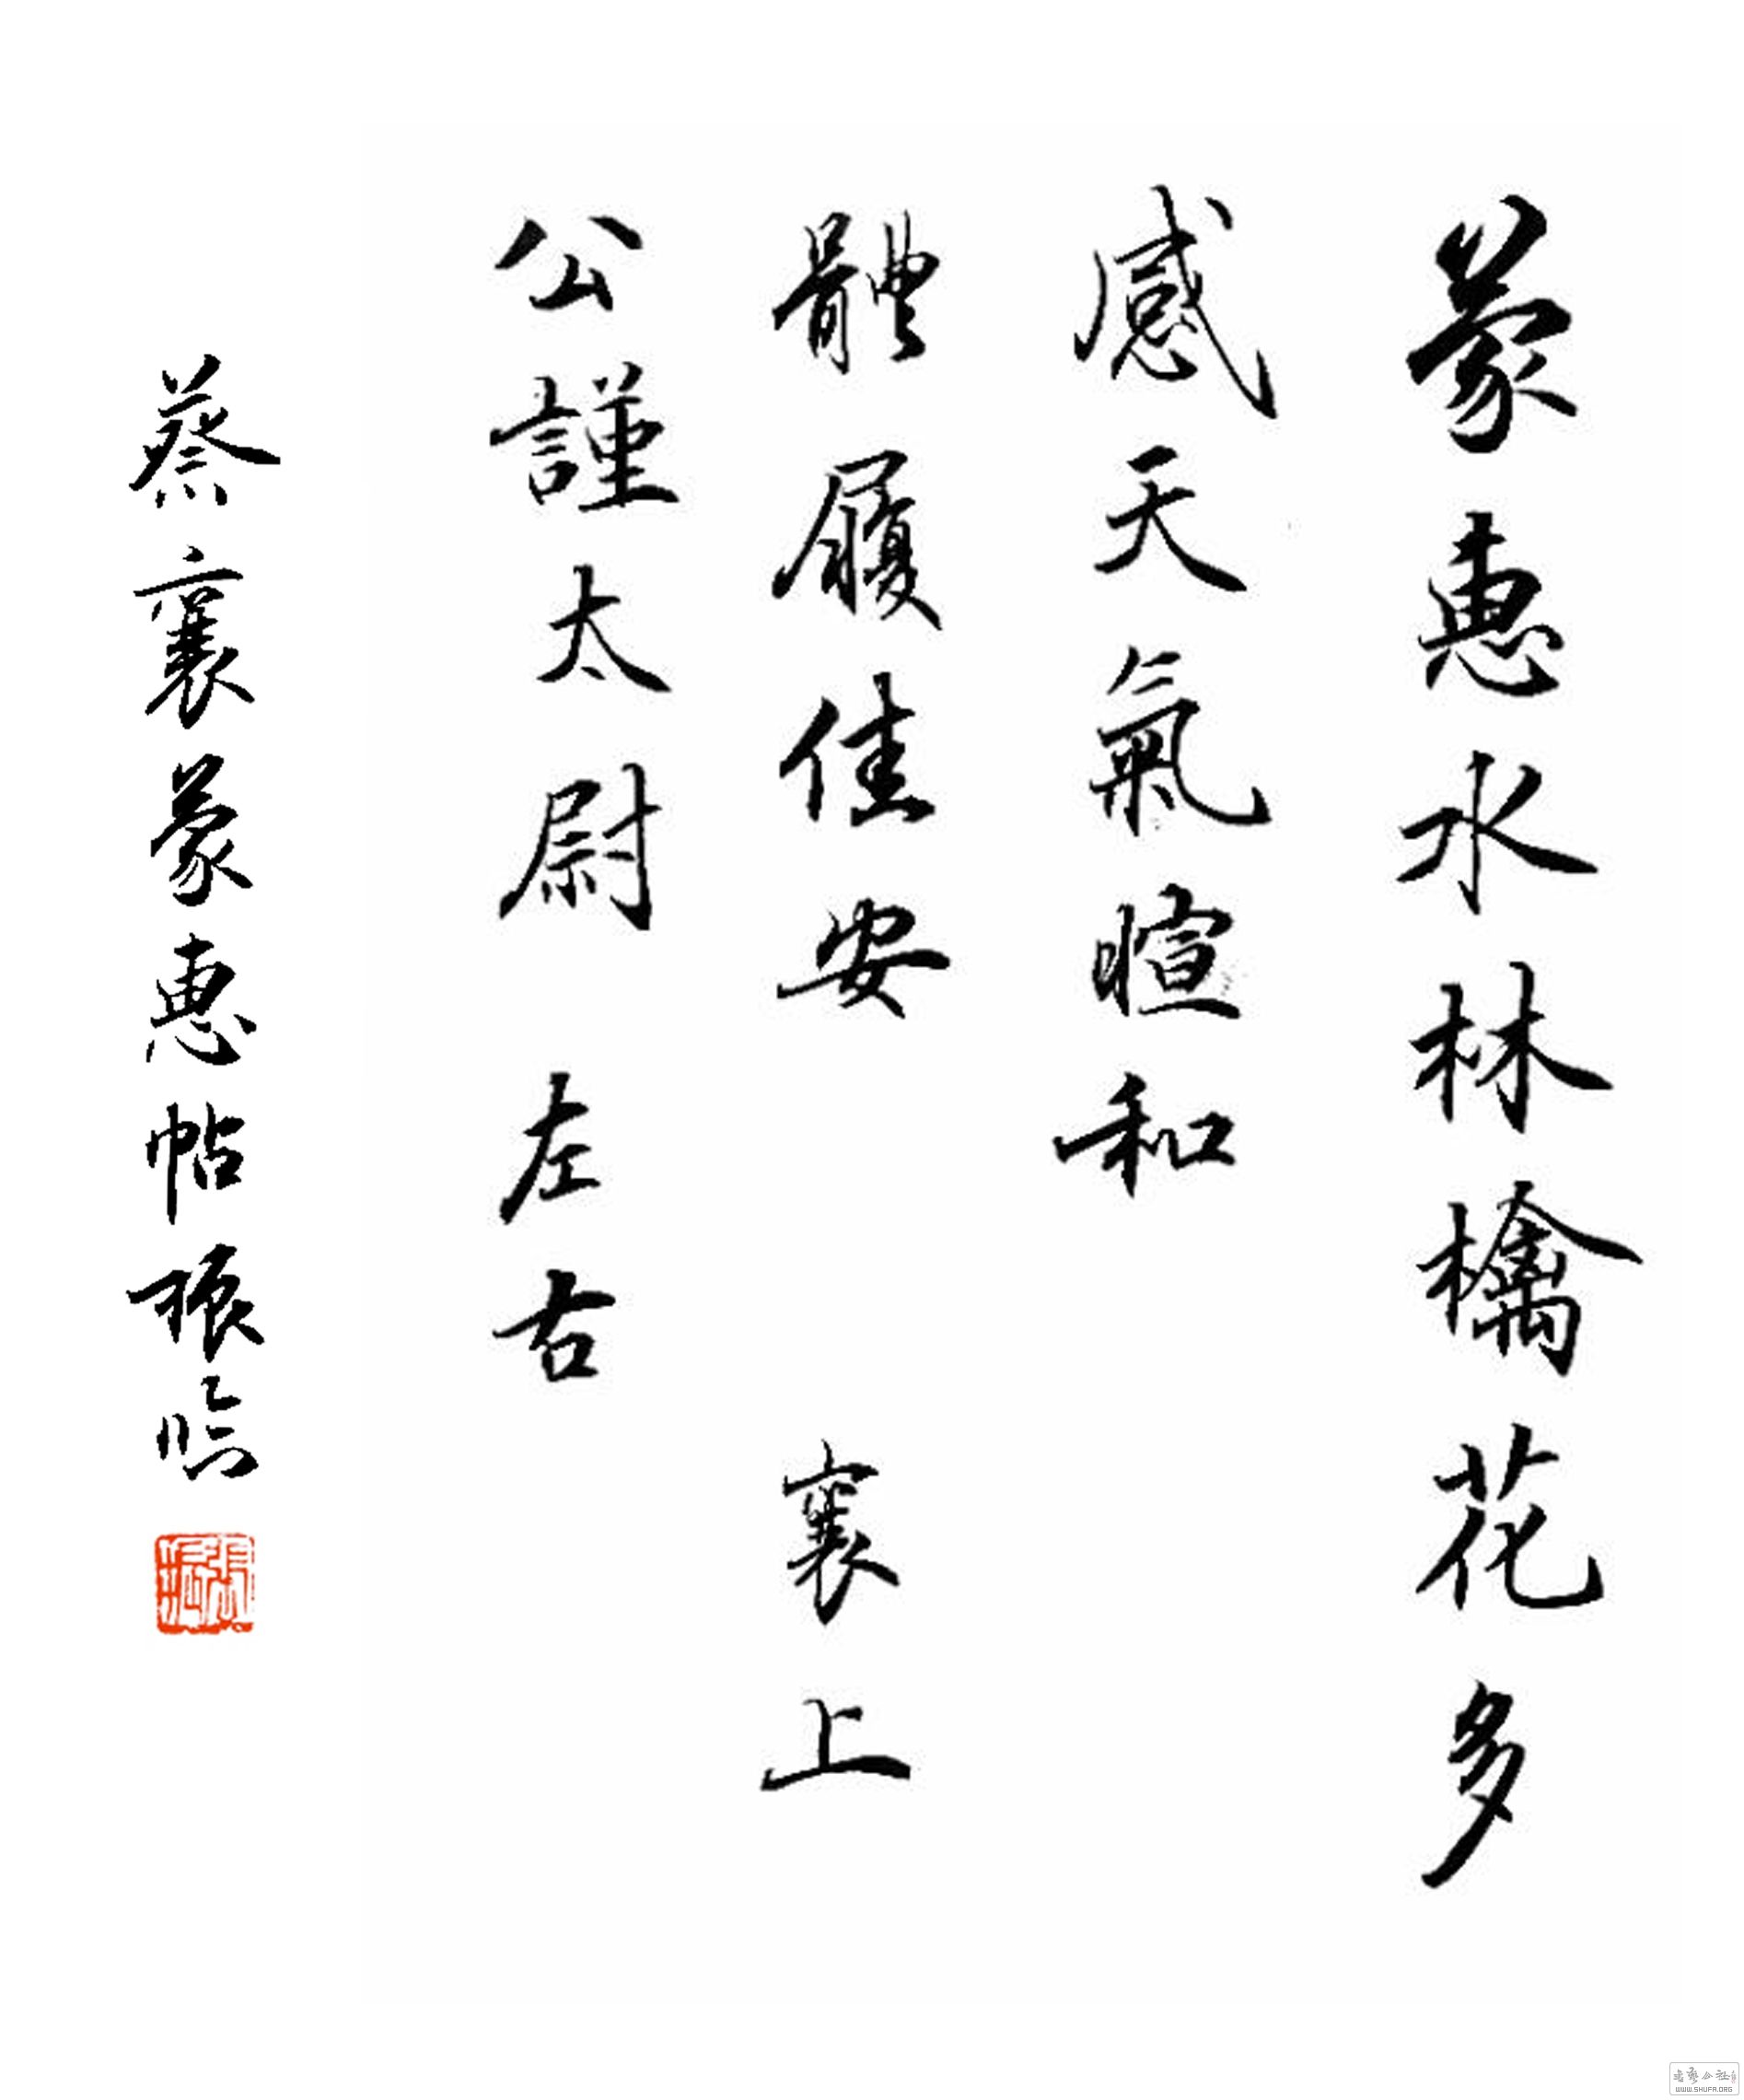 蒙惠水林檎花多
感天氣暄和
體履佳安 襄上
公謹太尉 左右
蔡襄蒙惠帖振臨
張振
书艺公社
WWW.SHUFA.ORG